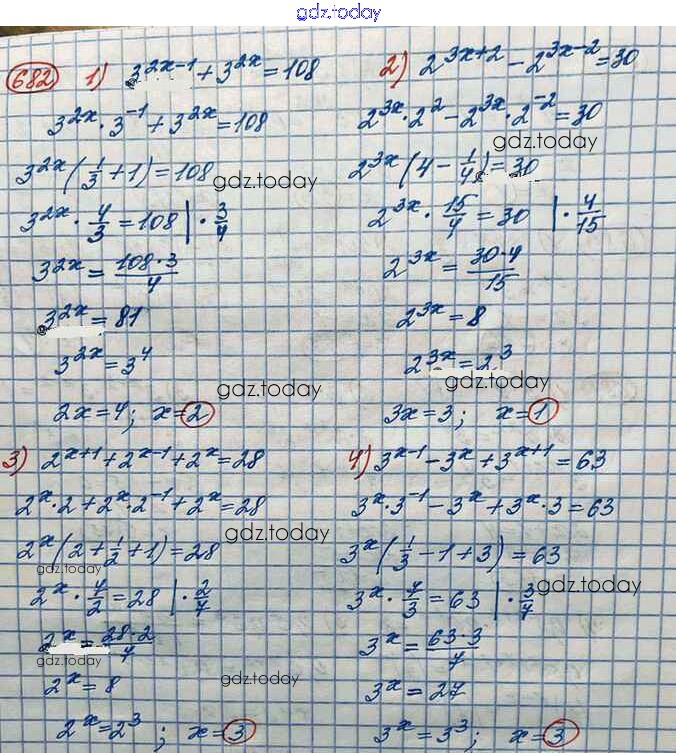 gdz.today
682 1) 3^(2x-1) + 3^(2x) = 108
3^(2x) · 3^(-1) + 3^(2x) = 108
3^(2x) (1/3 + 1) = 108
gdz.today
3^(2x) · 4/3 = 108 | · 3/4
3^(2x) = (108 · 3)/4
3^(2x) = 81
3^(2x) = 3^4
gdz.today
2x = 4; x = 2
2) 2^(3x+2) - 2^(3x-2) = 30
2^(3x) · 2^2 - 2^(3x) · 2^(-2) = 30
gdz.today
2^(3x) (4 - 1/4) = 30
2^(3x) · 15/4 = 30 | · 4/15
2^(3x) = (30 · 4)/15
2^(3x) = 8
2^(3x) = 2^3
gdz.today
3x = 3; x = 1
3) 2^(x+1) + 2^(x-1) + 2^x = 28
2^x · 2 + 2^x · 2^(-1) + 2^x = 28
gdz.today
2^x (2 + 1/2 + 1) = 28
gdz.today
2^x · 7/2 = 28 | · 2/7
2^x = (28 · 2)/7
gdz.today
gdz.today
2^x = 8
2^x = 2^3; x = 3
4) 3^(x-1) - 3^x + 3^(x+1) = 63
3^x · 3^(-1) - 3^x + 3^x · 3 = 63
3^x (1/3 - 1 + 3) = 63
gdz.today
3^x · 7/3 = 63 | · 3/7
3^x = (63 · 3)/7
3^x = 27
3^x = 3^3; x = 3